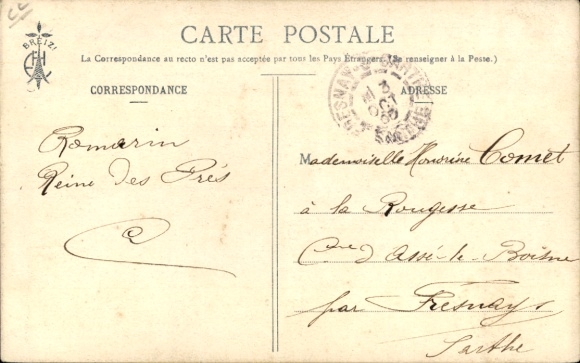 BREIZ
CARTE POSTALE
La Correspondance au recto n'est pas acceptée par tous les Pays Étrangers. (Se renseigner à la Poste.)
CORRESPONDANCE
ADRESSE
Romarin
Reine des Prés
Mademoiselle Honorine Comet
à la Rougesse
Cne d'Assé-le-Boisne
par Fresnay s/
Sarthe